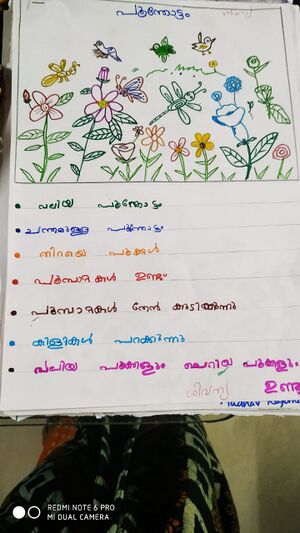 പൂന്തോട്ടം
വലിയ പൂന്തോട്ടം
ചന്തമുള്ള പൂന്തോട്ടം
നിറയെ പൂക്കൾ
പൂമ്പാറ്റകൾ ഉണ്ടു്
പൂമ്പാറ്റകൾ തേൻ കുടിക്കുന്നു
കിളികൾ പറക്കുന്നു
വലിയ പൂക്കളും ചെറിയ പൂക്കളും
ശിവന്യ ഉണ്ടു്
REDMI NOTE 6 PRO
MI DUAL CAMERA